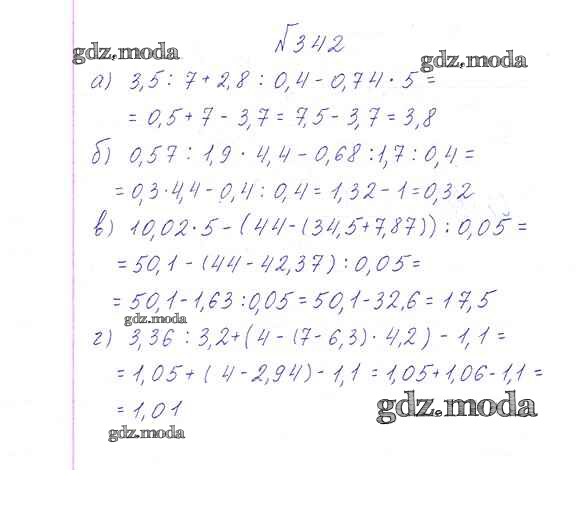 №342
gdz.moda
gdz.moda
а) 3,5 : 7 + 2,8 : 0,4 - 0,74 · 5 =
= 0,5 + 7 - 3,7 = 7,5 - 3,7 = 3,8
б) 0,57 : 1,9 · 4,4 - 0,68 : 1,7 : 0,4 =
= 0,3 · 4,4 - 0,4 : 0,4 = 1,32 - 1 = 0,32
в) 10,02 · 5 - (44 - (34,5 + 7,87)) : 0,05 =
= 50,1 - (44 - 42,37) : 0,05 =
= 50,1 - 1,63 : 0,05 = 50,1 - 32,6 = 17,5
gdz.moda
г) 3,36 : 3,2 + (4 - (7 - 6,3) · 4,2) - 1,1 =
= 1,05 + (4 - 2,94) - 1,1 = 1,05 + 1,06 - 1,1 =
= 1,01
gdz.moda
gdz.moda